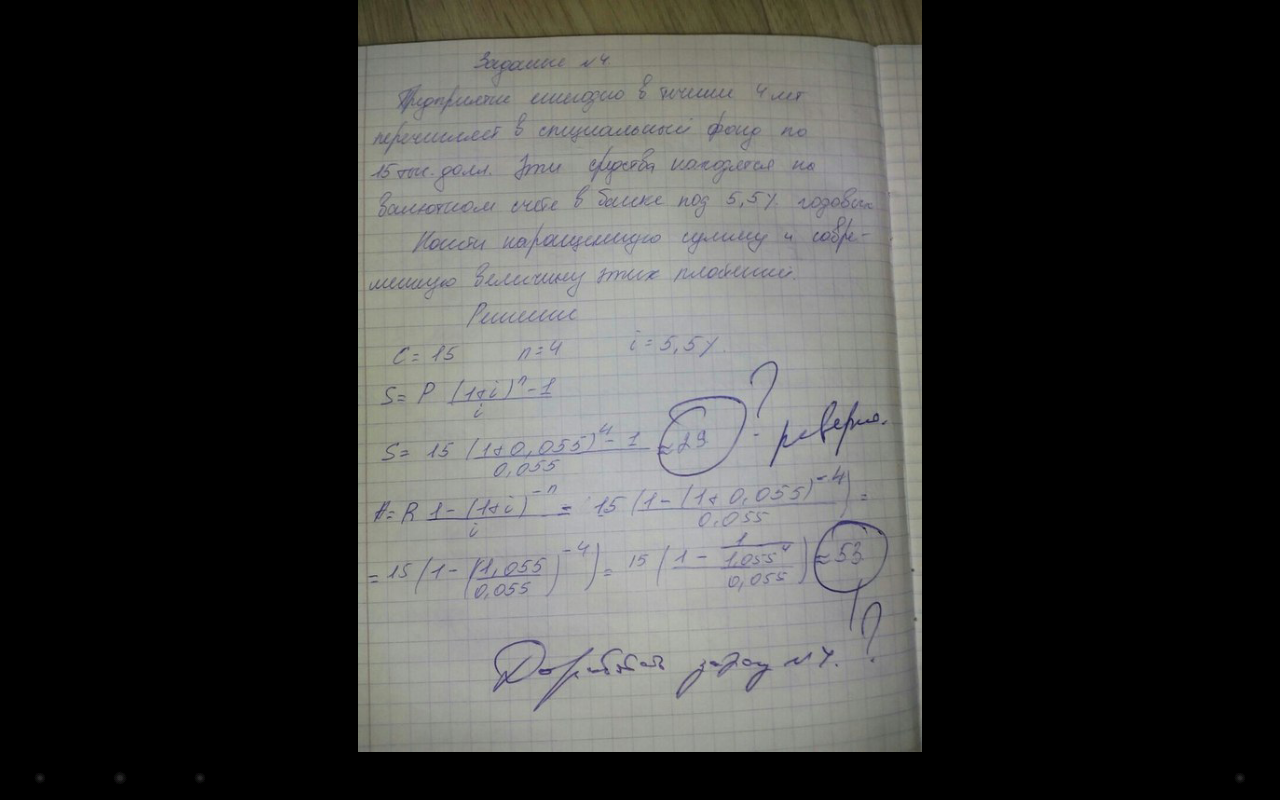 Задание №4
Предприятие ежегодно в течении 4 лет
перечисляет в специальный фонд по
15 тыс. долл. Эти средства находятся на
валютном счете в банке под 5,5% годовых
Найти наращенную сумму и совре-
менную величину этих платежей.
Решение
C = 15 n = 4 i = 5,5%.
S = P ((1+i)^n - 1)/i
S = 15 ((1+0,055)^4 - 1)/0,055 ≈ 29 ? - неверно.
A = R (1 - (1+i)^-n)/i = 15 (1 - (1+0,055)^-4)/0,055) =
= 15 (1 - (1,055/0,055)^-4) = 15 (1 - 1/1,055^4 / 0,055) ≈ 53
?
Доработать задачу №4.